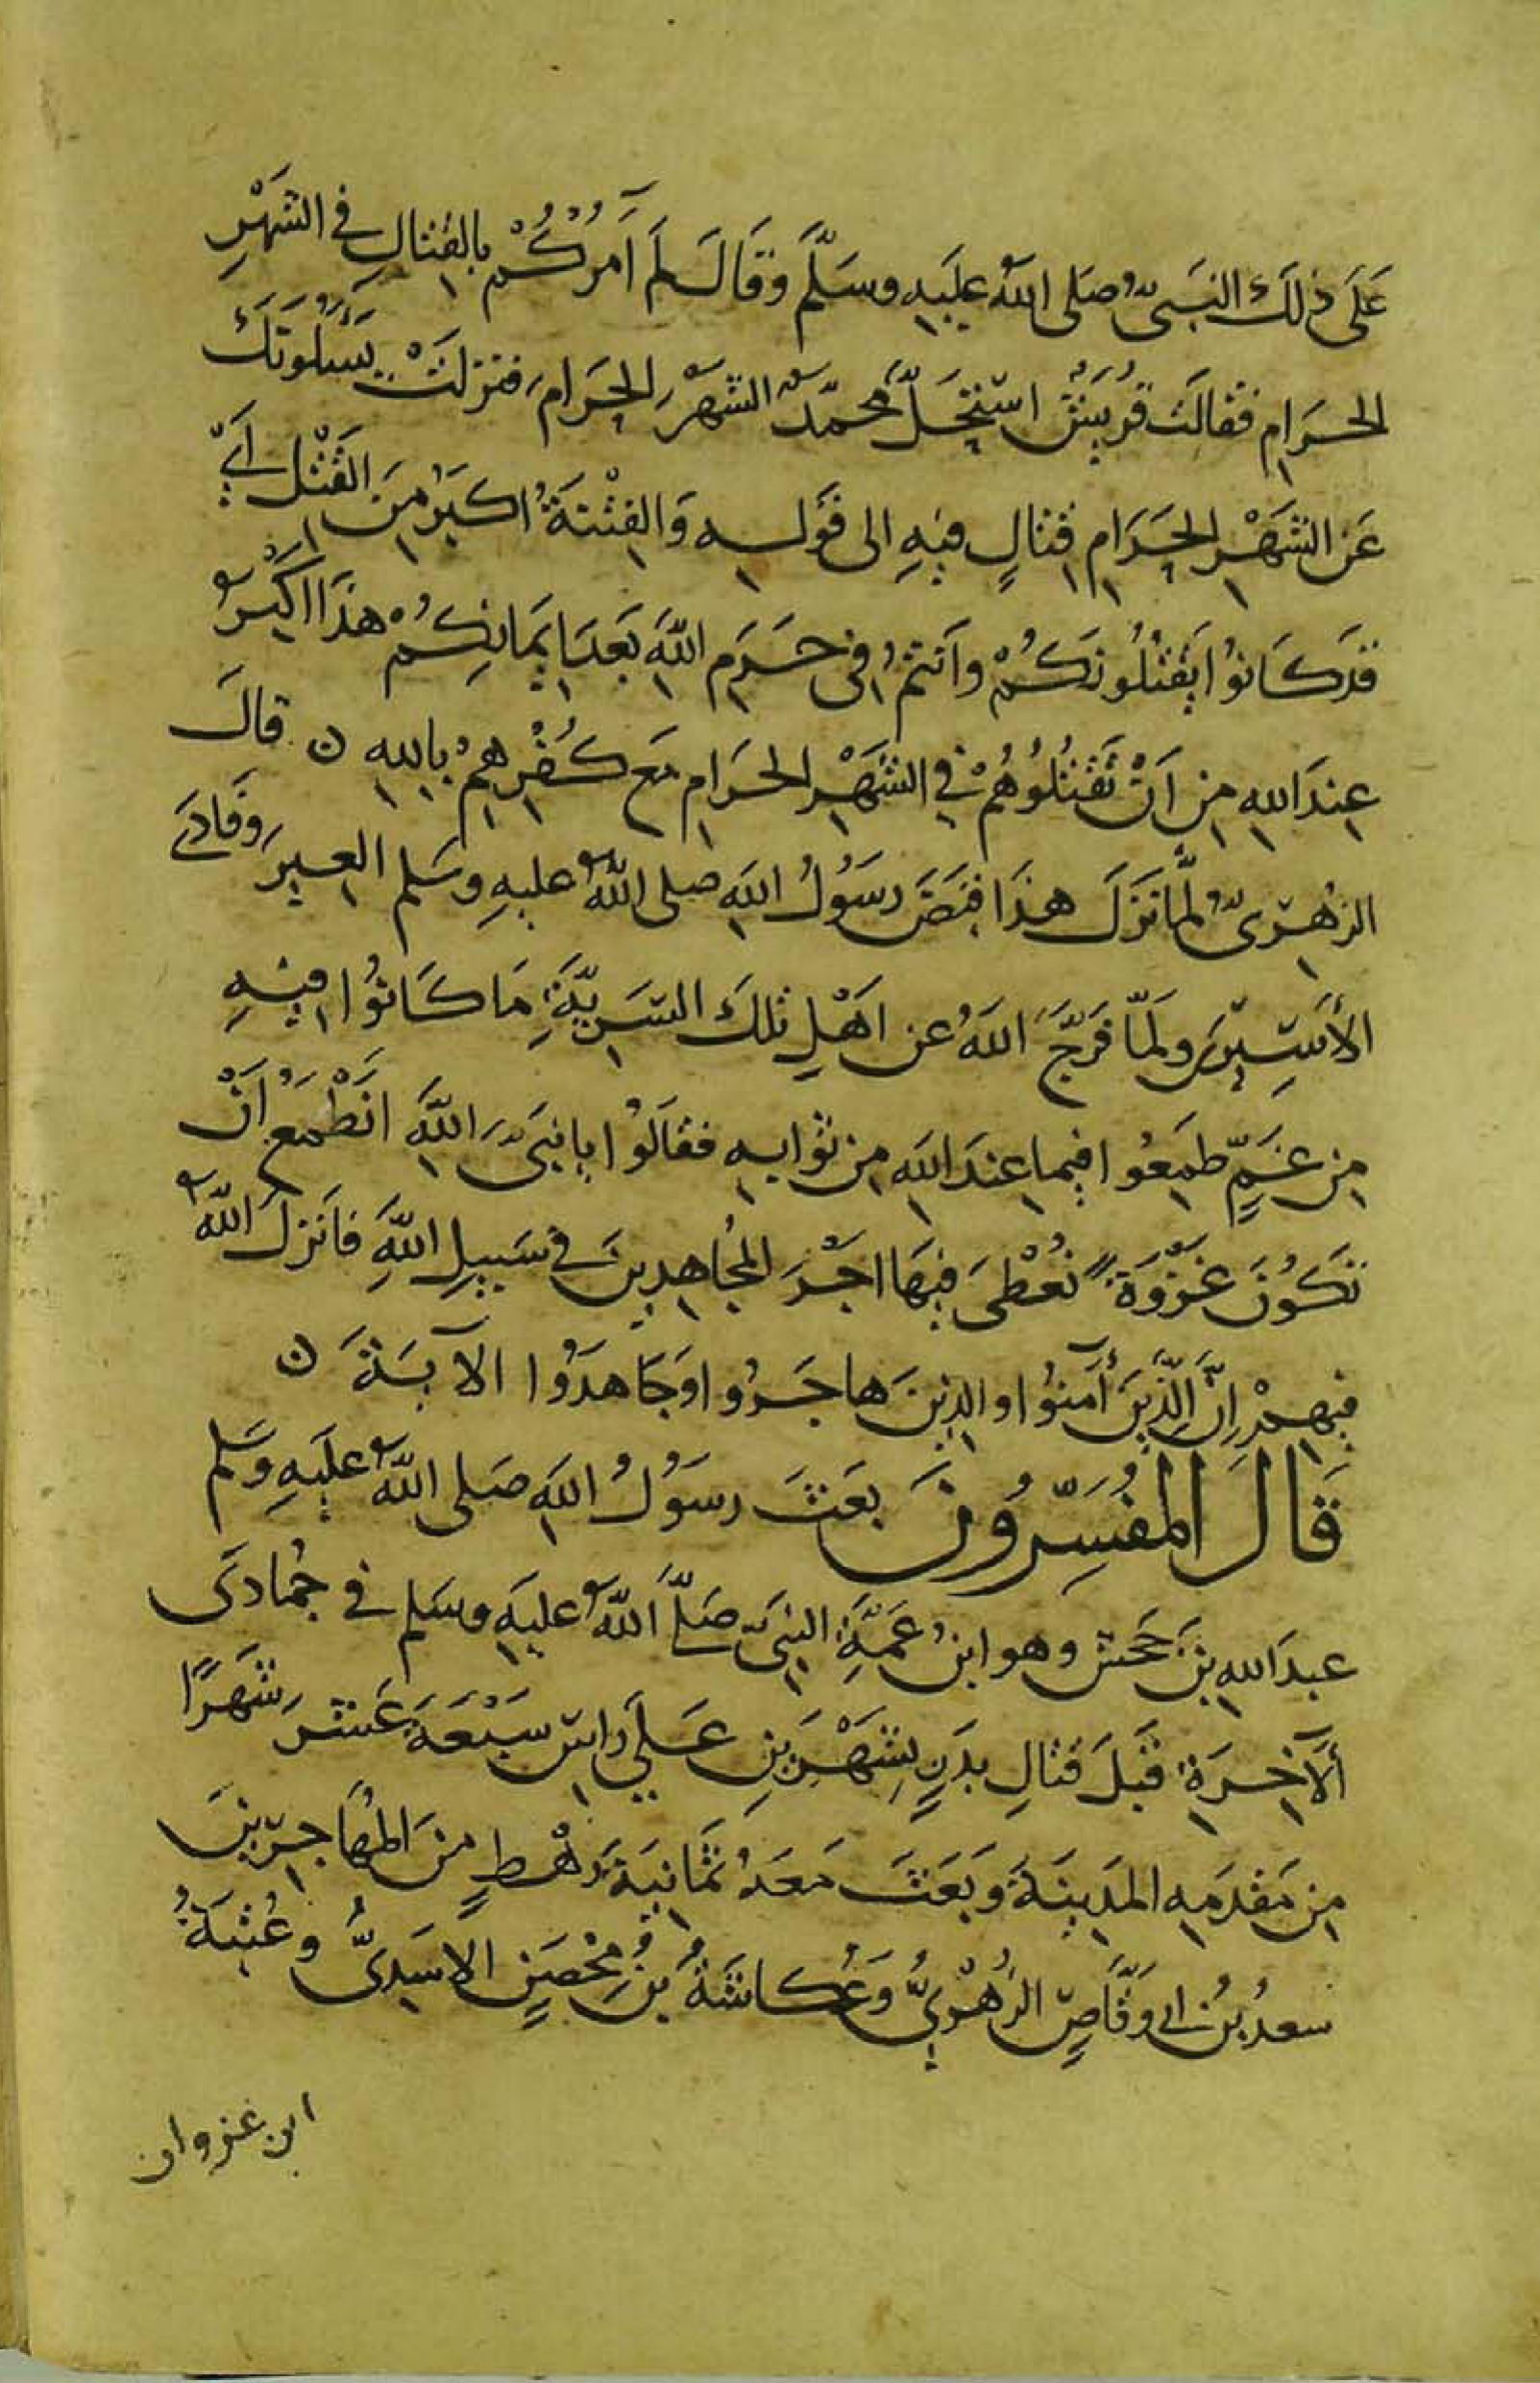 عَلَى ذٰلَكَ النَبَىُّ صَلى اللهُ عليَهِ وسَلَّمَ وَقَالَ لَمَ آمُرْكُمْ بالقِتَالِ فِى الشَهْرِ
الحَرَامِ فقالَتَ قُرَيَشٌ اسْتَحَلَّ مُحمّدٌ الشَهْرَ الحَرَامَ فنزلَتْ يَسْئَلُوَنَكَ
عَنِ الشَهْرِ الحَرَامِ قِتَالٍ فيهِ الى قَوْلِهِ وَالفِتْنَةُ اكبَرُ مِنَ القَتْلِ أَىْ
قَدَ كَانوُا يَفْتِنُونَكُمْ وَانَتمُ فِى حَرَمِ اللهِ بَعدَ ايمَانِكُمْ هذَا اكَبْرُ
عِندَ اللهِ مِن اَنْ تَقْتُلُوُهُمْ فِى الشَهْرِ الحَرَامِ مَع كُفْرِهِمْ بِاللهِ ن قالَ
الزهُرِىُّ لَمَّا نَزَلَ هذَا قبَضَ رسَوُلُ اللهِ صلى اللهُ عليهِ وسَلم العِيرَ وَفادَى
الأَسَيِريَنِ ولَمّا فَرّجَ اللهُ عن اهَلِ تلكَ السَرِيّةِ مَا كَانوُا فيهِ
مِن غَمٍّ طمَعِوُا فيما عِندَ اللهِ مِن ثوَابِهِ فقالَوُا يا نبَىَّ اللهِ انَطْمَعُ اَنْ
تَكوُنَ غَزْوَةً نُعْطىَ فيهَا اجْرَ المُجاهِدِينَ فى سَبِيلِ اللهِ فانَزلَ اللهُ
فِيهمِْ اِنَّ الَّذِينَ أمَنوُا والذِينَ هاجَروُا وَجَاهدَوُا الآيَةَ ن
قَالَ المُفَسِّرُونَ بعَثَ رسَوُلُ اللهِ صَلى اللهُ عليَهِ وَسَلم
عبدَ اللهِ بنَ جَحشٍ وهو ابنُ عَمّةِ النبِىّ صَلَّى اللهُ عليَهِ وسَلم فى جُمادَى
ألآخِرَةِ قبَلَ قتالِ بدَرٍ بِشَهْرَيَنِ عَلَى رَاسِ سَبْعَةَ عَشَرَ شَهَرًا
مِن مَقدَمِهِ المدَينَةَ وبَعَثَ مَعَهُ ثَمَانِيَةَ رَهْطٍ مِنَ المُهَاجِرِينَ
سعدُ بنُ ابى وَقَّاصٍ الزُهْرِىُّ وَعُكاشَةُ بنُ مِحْصَنٍ الاسَدِىُّ وعُتبَةُ
ابن غزوان